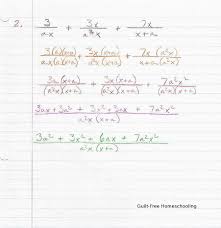 2. 3/ax + 3x/a²x + 7x/x+a
3(a)(x+a)/ax(a)(x+a) + 3x(x+a)/a²x(x+a) + 7x(a²x)/x+a(a²x)
3a(x+a)/(a²x)(x+a) + 3x(x+a)/(a²x)(x+a) + 7a²x²/(a²x)(x+a)
3ax+3a² + 3x²+3ax + 7a²x²/a²x(x+a)
3a² + 3x² + 6ax + 7a²x²/a²x(x+a)
Guilt-Free Homeschooling